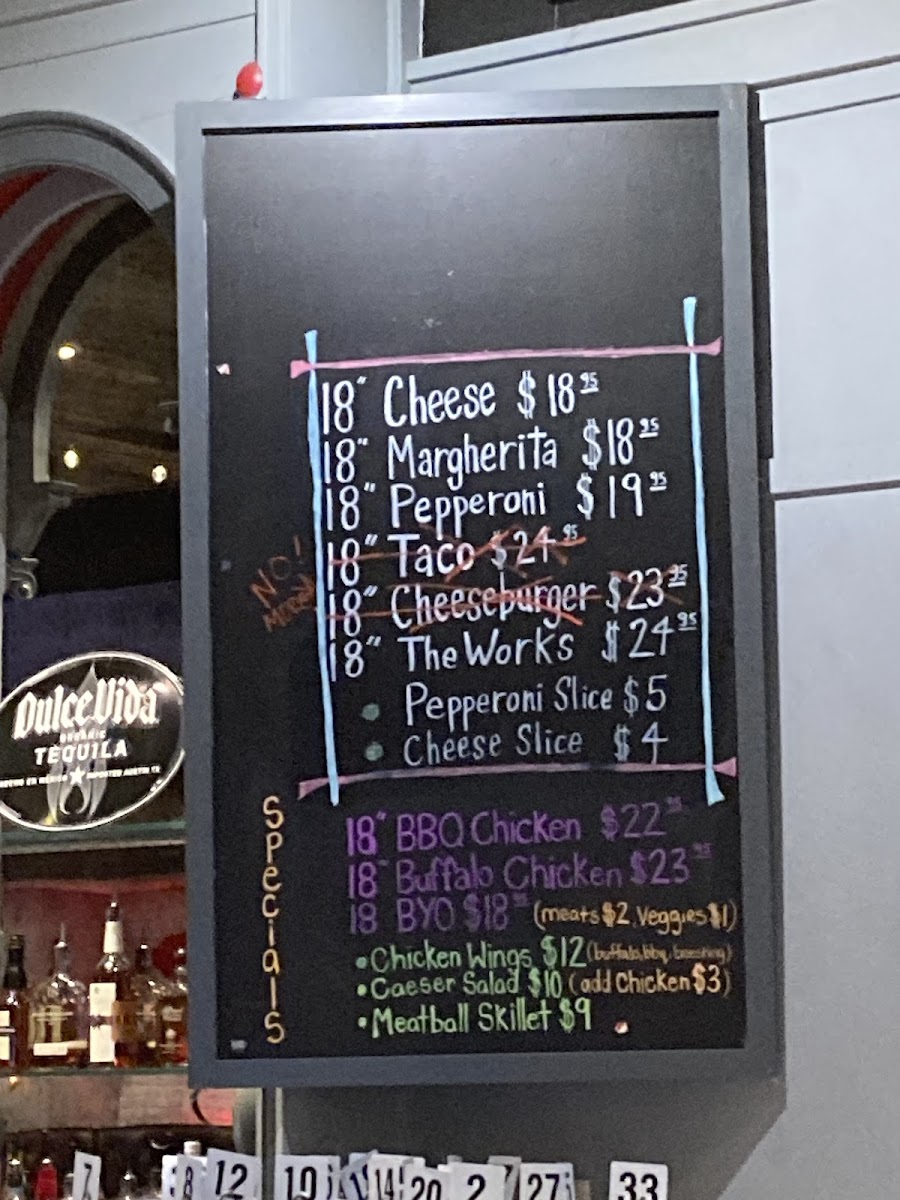 18" Cheese $18.95
18" Margherita $18.95
18" Pepperoni $19.95
NO!
18" Taco $24.95
18" Cheeseburger $23.95
18" The Works $24.95
• Pepperoni Slice $5
• Cheese Slice $4
Specials
18" BBQ Chicken $22.95
18" Buffalo Chicken $23.95
18 BYO $18 (meats $2, Veggies $1)
• Chicken Wings $12 (buffalo, bbq,
• Caeser Salad $10 (add Chicken $3)
• Meatball Skillet $9
Dulce Vida
ORGANIC
TEQUILA
HECHO EN MEXICO ★ IMPORTED AUSTIN TX
7
12
19
14
20
2
27
33